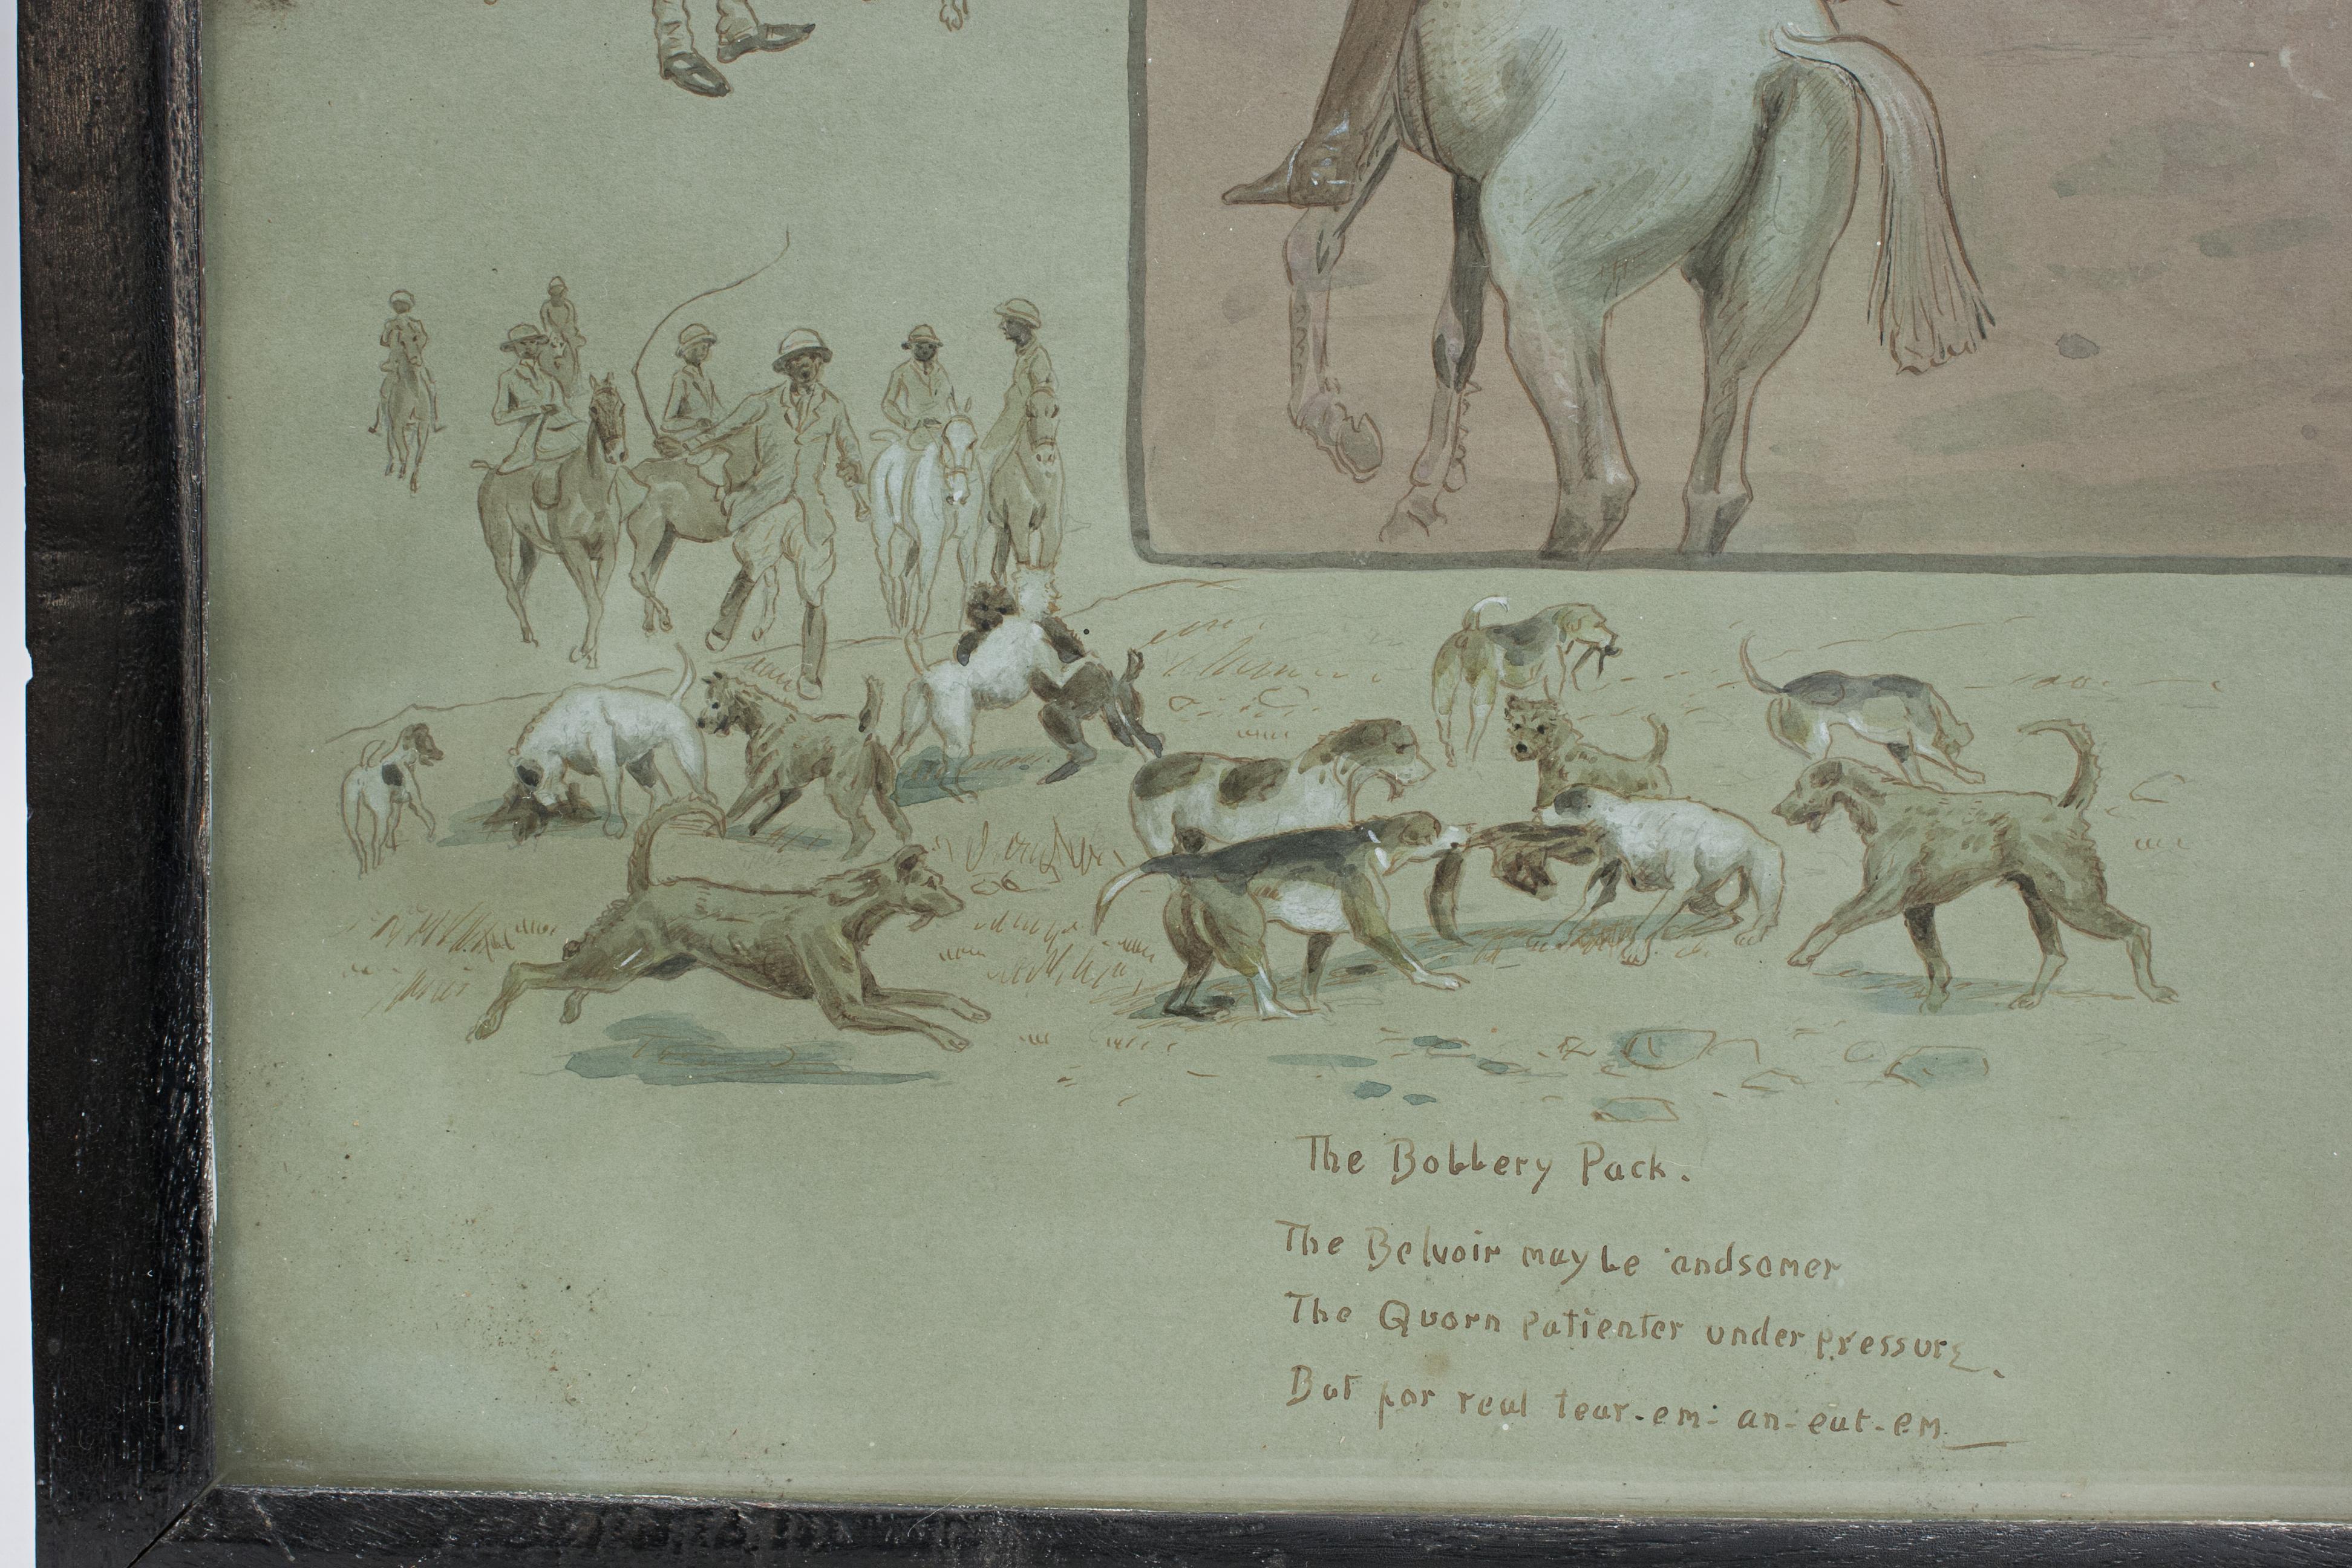 The Bobbery Pack.
The Belvoir may be 'andsomer
The Quorn patienter under pressure.
But for real tear-em-an-eat-em_